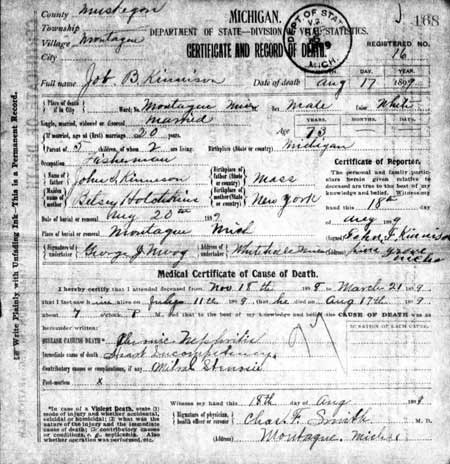 J 168
County Muskegon
Township
Village Montague
City
MICHIGAN.
DEPARTMENT OF STATE—DIVISION OF VITAL STATISTICS.
CERTIFICATE AND RECORD OF DEATH
DEPT. OF STATE V.S. MICH.
REGISTERED NO. 16
Full name Job. B Kinnison Date of death Aug 17 1899
MONTH. DAY. YEAR.
Place of death if in City Ward; No. Montague Mich Sex Male Color White
Single, married, widowed or divorced Married
YEARS. MONTHS. DAYS.
If married, age at (first) marriage 20 years. Age 73
Parent of 5 children, of whom 2 are living. Birthplace (State or country) Michigan
Occupation Fisherman
Name of father John S Kinnison Birthplace of father (State or country) Mass
Name of mother Betsey Holdskins Birthplace of mother (State or country) New York
Date of burial or removal Aug 20th 1899
Place of burial or removal Montague Mich
Signature of undertaker George J Address Whitehall
Certificate of Reporter.
The personal and family particulars herein given relative to deceased are true to the best of my knowledge and belief. Witness my hand this 18th day of Aug 1899
John F Kinnison
Medical Certificate of Cause of Death.
I hereby certify that I attended deceased from Nov 18th 1898 to March 21 1899,
that I last saw him alive on July 11th 1899, that he died on Aug 17th 1899,
about 7 o'clock, P. M., and that to the best of my knowledge and belief the CAUSE OF DEATH was as
hereunder written:
DURATION OF EACH CAUSE.
DISEASE CAUSING DEATH* Chronic Nephritis
Immediate cause of death Heart Incompetency
Contributory causes or complications, if any Mitral Stenosis
Post-mortem x
Witness my hand this 18th day of Aug 1899
Signature of physician, health officer or coroner Chas F. Smith M. D.
(Address) Montague, Mich
*In case of a Violent Death, state (1) mode of injury and whether accidental, suicidal or homicidal; (2) what was the nature of the injury and the immediate cause of death; (3) contributory causes or conditions, e. g., septicæmia. Also whether operation was performed, etc.
Write Plainly with Unfading Ink—This is a Permanent Record.